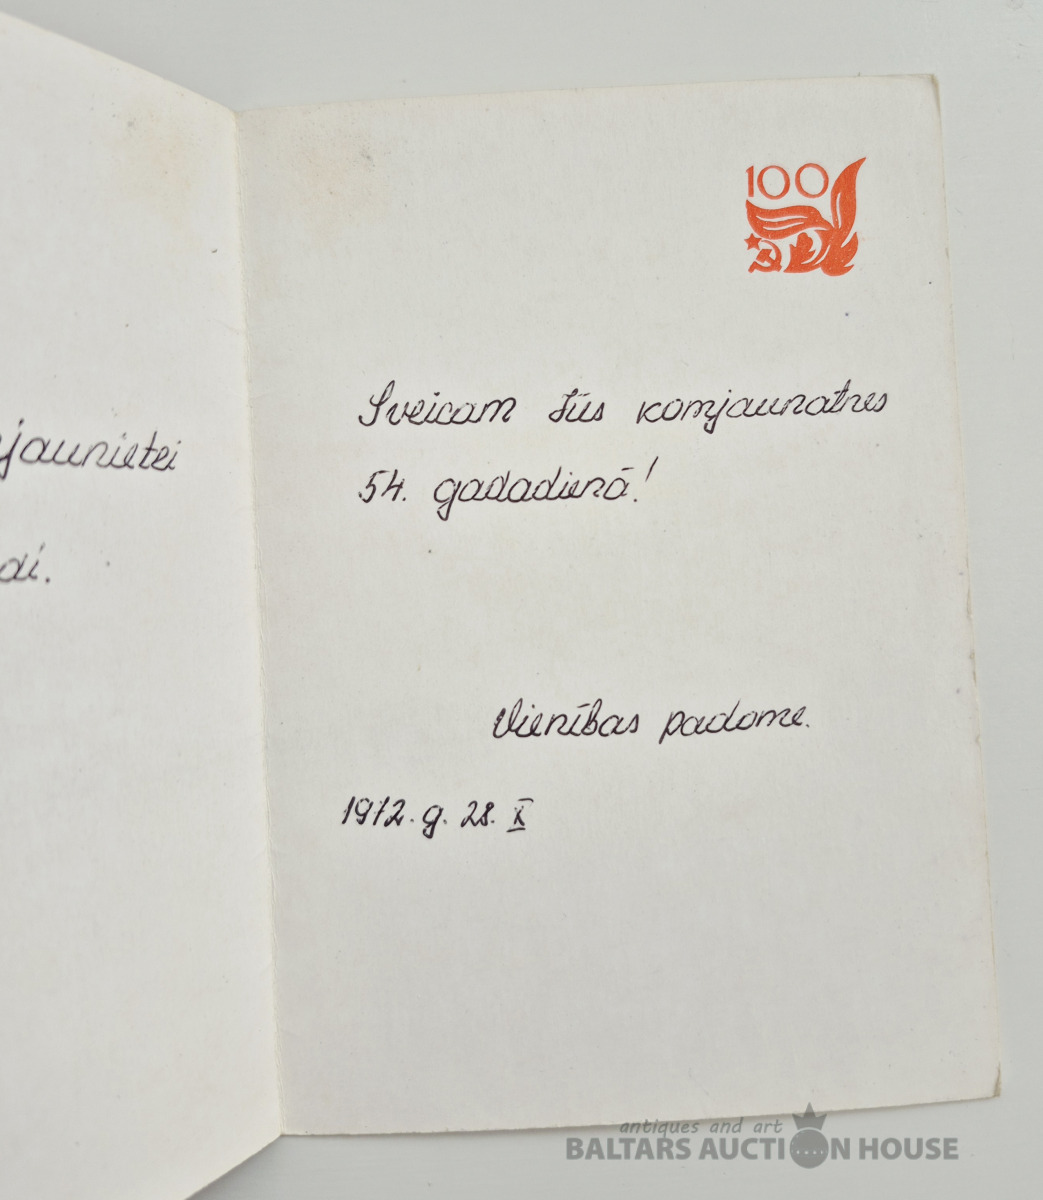 jaunietei
di.
100
Sveicam Jūs komjaunatnes
54. gadadienā!
Vienības padome.
1972. g. 28. X
antiques and art
BALTARS AUCTION HOUSE